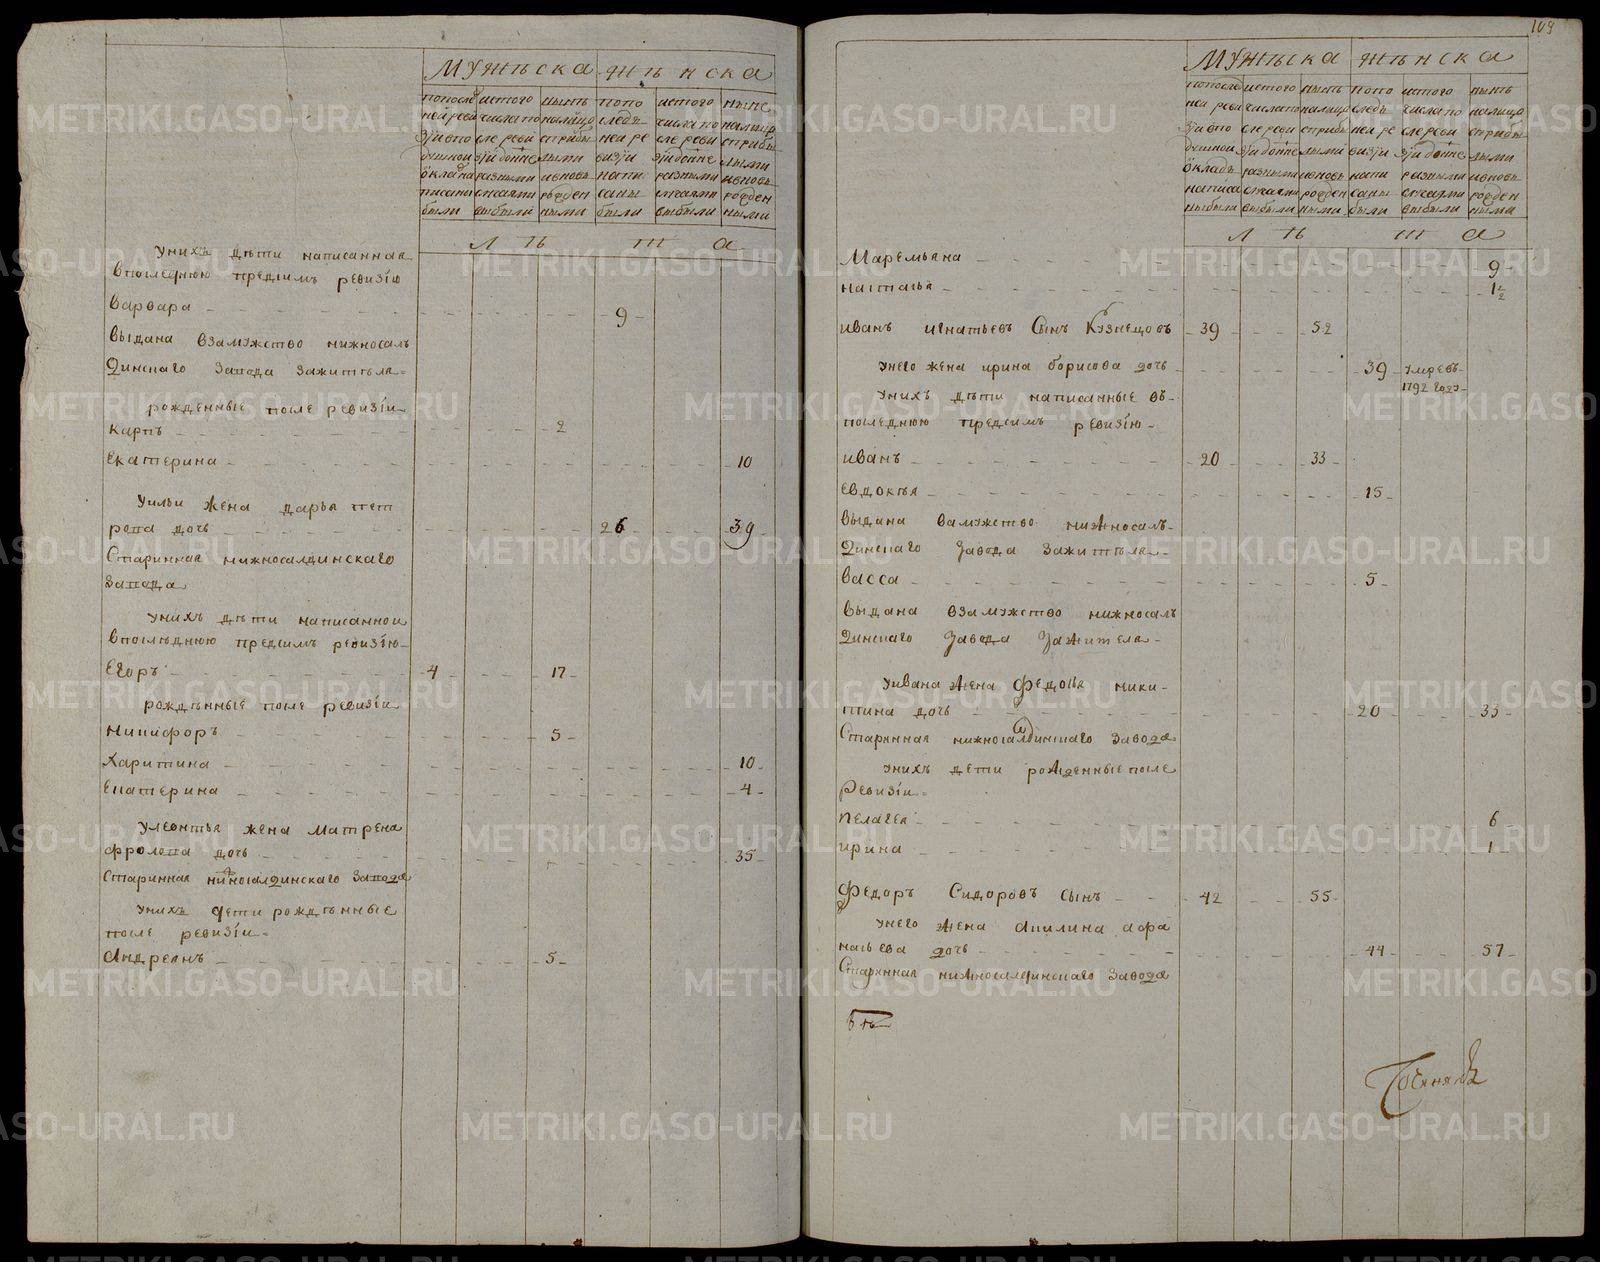 Мужьска
жѣнска
попосле
ней реви
зіи впо
душной
окладъ
написаны
были
истого
числа по
сле реви
зіи дойне
разными
случаями
выбыли
нынѣ
налицо
сприбы
лыми
ивновь
рожден
ными
попо
следъ
ней ре
визіи
напи
саны
были
истого
числа по
сле реви
зіи дойне
разными
случаями
выбыли
нынѣ
налицо
сприбы
лыми
ивновь
рожден
ными
л ѣ т а
Унихъ дѣти написанная
впоследнюю предсимъ ревизію
Варвара 9
выдана взамужство нижносалъ
динскаго завода зажителя
рожденные после ревизіи
Карпъ 2
Екатерина 10
Уильи жена дарья пет
рова дочь 26 39
Старинная нижносалдинскаго
завода
Унихъ дѣти написанной
впослѣднюю предсимъ ревизію
Егоръ 4 17
рождѣнные после ревизіи
Никифоръ 5
Харитина 10
Екатерина 4
Улеонтья жена Матрена
фролова дочь 35
Старинная нижносалдинскаго завода
Унихъ дети рождѣнные
после ревизіи
Андреянъ 5
109
Мужьска
жѣнска
попосле
ней реви
зіи впо
душной
окладъ
написа
ны были
истого
числа по
сле реви
зіи дойне
разными
случаями
выбыли
нынѣ
налицо
сприбы
лыми
ивновь
рожден
ными
попо
следъ
ней ре
визіи
напи
саны
были
истого
числа по
сле реви
зіи дойне
разными
случаями
выбыли
нынѣ
налицо
сприбы
лыми
ивновь
рожден
ными
л ѣ т а
Маремьяна 9
Настасья 1/2
иванъ игнатьевъ Сынъ Кузнецовъ 39 52
Унего жена ирина борисова дочь 39 умре въ
1792 году
Унихъ дѣти написанные въ
последнюю предсимъ ревизію
иванъ 20 33
Евдокья 15
выдана вамужство нижносалъ
динскаго завода зажителя
васса 5
выдана взамужство нижносалъ
динскаго завода зажителя
Уивана жена Федосья ники
тина дочь 20 33
Старинная нижносалдинскаго завода
Унихъ дети рожденные после
Ревизіи
Пелагея 6
ирина 1
Федоръ Сидоровъ сынъ 42 55
Унего жена Акилина афа
насьева дочь 44 57
Старинная нижносалдинскаго завода
METRIKI.GASO-URAL.RU